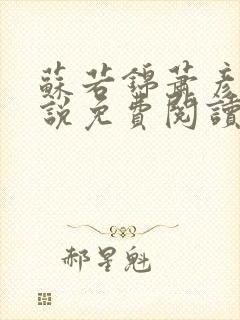 蘇若錦蕭彥
說免費閱讀
郝星魁